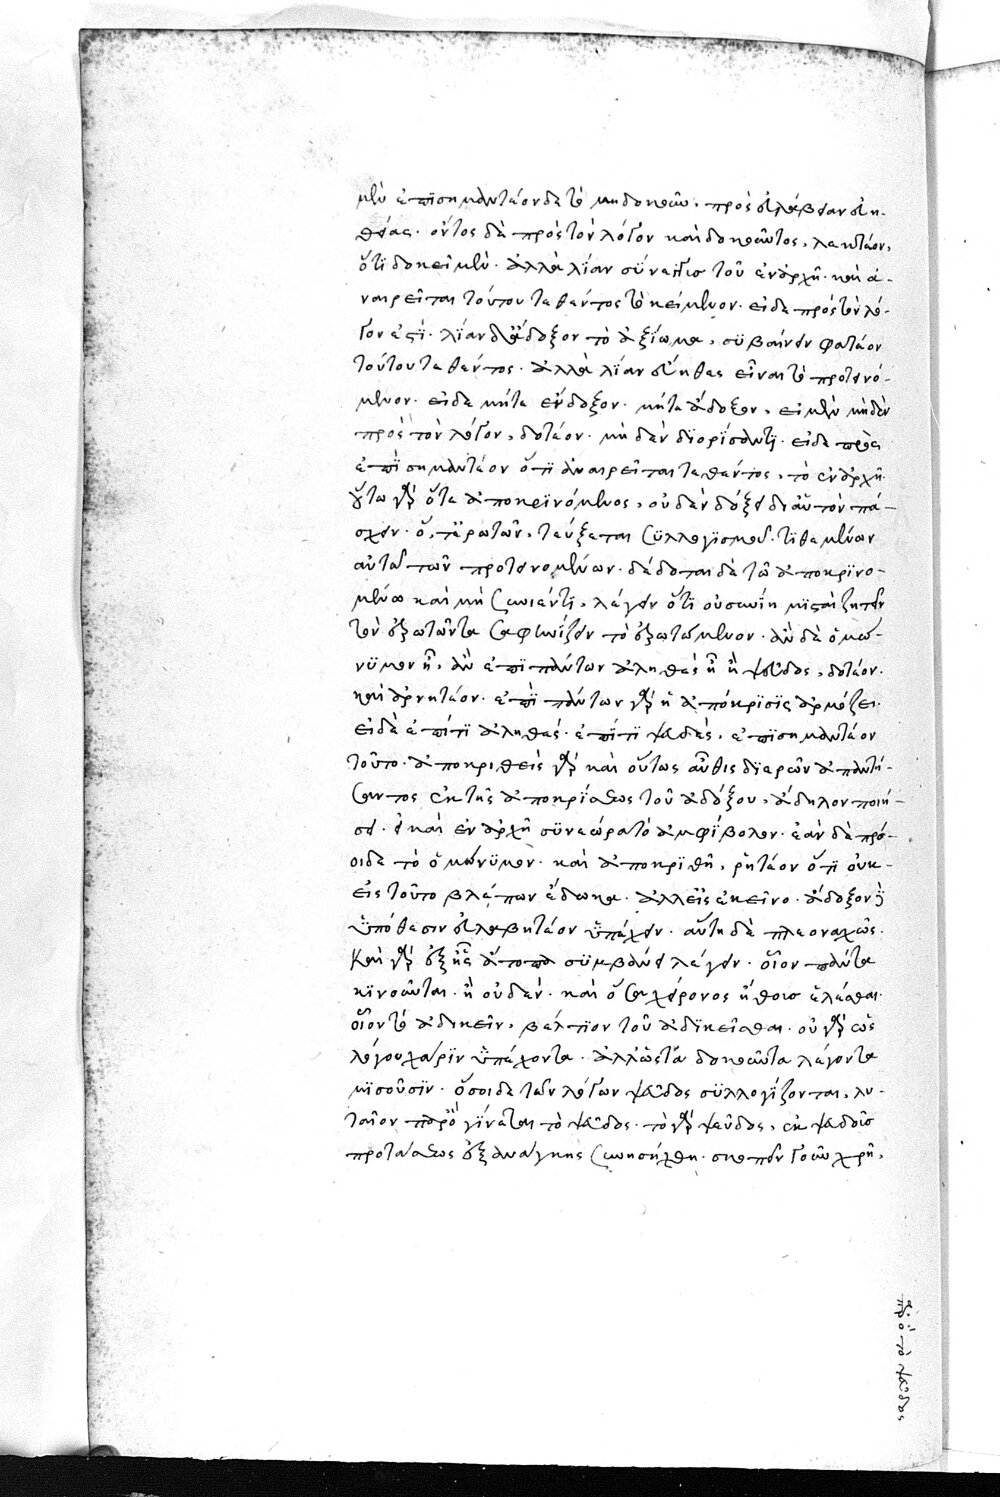 μὲν ἐπισημαντέον δὲ τὸ μὴ δοκοῦν. πρὸς εὐλάβειαν εὐη-
θείας. ὄντος δὲ πρὸς τὸν λόγον καὶ δοκοῦντος, λεκτέον,
ὅτι δοκεῖ μέν. ἀλλὰ λίαν σύνεγγυς τοῦ ἐν ἀρχῇ. καὶ ἀ-
ναιρεῖται τούτου τεθέντος τὸ κείμενον. εἰ δὲ πρὸς τὸν λό-
γον ἐστί. λίαν δὲ ἄδοξον τὸ ἀξίωμα, συμβαίνειν φατέον
τούτου τεθέντος. ἀλλὰ λίαν εὔηθες εἶναι τὸ προτεινό-
μενον. εἰ δὲ μήτε ἔνδοξον. μήτε ἄδοξον, εἰ μὲν μηδὲν
πρὸς τὸν λόγον, δοτέον. μηδὲν διορίσαντι. εἰ δὲ πρὸς
ἐπισημαντέον ὅτι ἀναιρεῖται τεθέντος, τὸ ἐν ἀρχῇ.
οὕτω γὰρ ὅτε ἀποκρινόμενος, οὐδὲν δόξει δι' αὑτὸν πά-
σχειν. ὅ, τε ἐρωτῶν, τεύξεται συλλογισμοῦ. τιθεμένων
αὐτῷ τῶν προτεινομένων. δέδοται δὲ τῷ ἀποκρινο-
μένῳ καὶ μὴ συνιέντι, λέγειν ὅτι οὐ συνίημι καὶ ζητεῖν
τὸν ἐρωτῶντα σαφηνίζειν τὸ ἐρωτώμενον. ἂν δὲ ὁμώ-
νυμον ᾖ, ἂν ἐπὶ πάντων ἀληθὲς ᾖ ἢ ψεῦδος, δοτέον.
καὶ ἀρνητέον. ἐπὶ πάντων γὰρ ἡ ἀπόκρισις ἁρμόζει.
εἰ δὲ ἐπί τι ἀληθές. ἐπί τι ψεῦδές, ἐπισημαντέον
τοῦτο. ἀποκριθεὶς γὰρ καὶ οὕτως αὖθις διαιρῶν ἀπαντή-
σαντος ἐκ τῆς ἀποκρίσεως τοῦ ἀδόξου, ἄδηλον ποιή-
σει. εἰ καὶ ἐν ἀρχῇ συνεώρα τὸ ἀμφίβολον. ἐὰν δὲ πρό-
οιδε τὸ ὁμώνυμον. καὶ ἀποκριθῇ, ῥητέον ὅτι οὐκ
εἰς τοῦτο βλέπων ἔδωκα. ἀλλ' εἰς ἐκεῖνο. ἄδοξον δὲ
ὑπόθεσιν εὐλαβητέον ὑπέχειν. αὕτη δὲ πλεοναχῶς.
Καὶ γὰρ ἐξ ἧς ἄτοπα συμβαίνει λέγειν. οἷον πάντα
κινοῦνται. ἢ οὐδέν. καὶ ὅσα χείρονος ἤθους ἑλέσθαι.
οἷον τὸ ἀδικεῖν, βέλτιον τοῦ ἀδικεῖσθαι. οὐ γὰρ ὡς
λόγου χάριν ὑπέχοντα. ἀλλ' ὡς τὰ δοκοῦντα λέγοντα
μισοῦσιν. ὅσοι δὲ τῶν λόγων ψεῦδος συλλογίζονται, λυ-
τέον παρ' ὃ γίνεται τὸ ψεῦδος. τὸ γὰρ ψεῦδος, ἐκ ψευδοῦς
προτάσεως ἐξ ἀνάγκης συνησήχθη. σκοπεῖν γοῦν χρή,
παρ' ὃ τὸ ψεῦδος